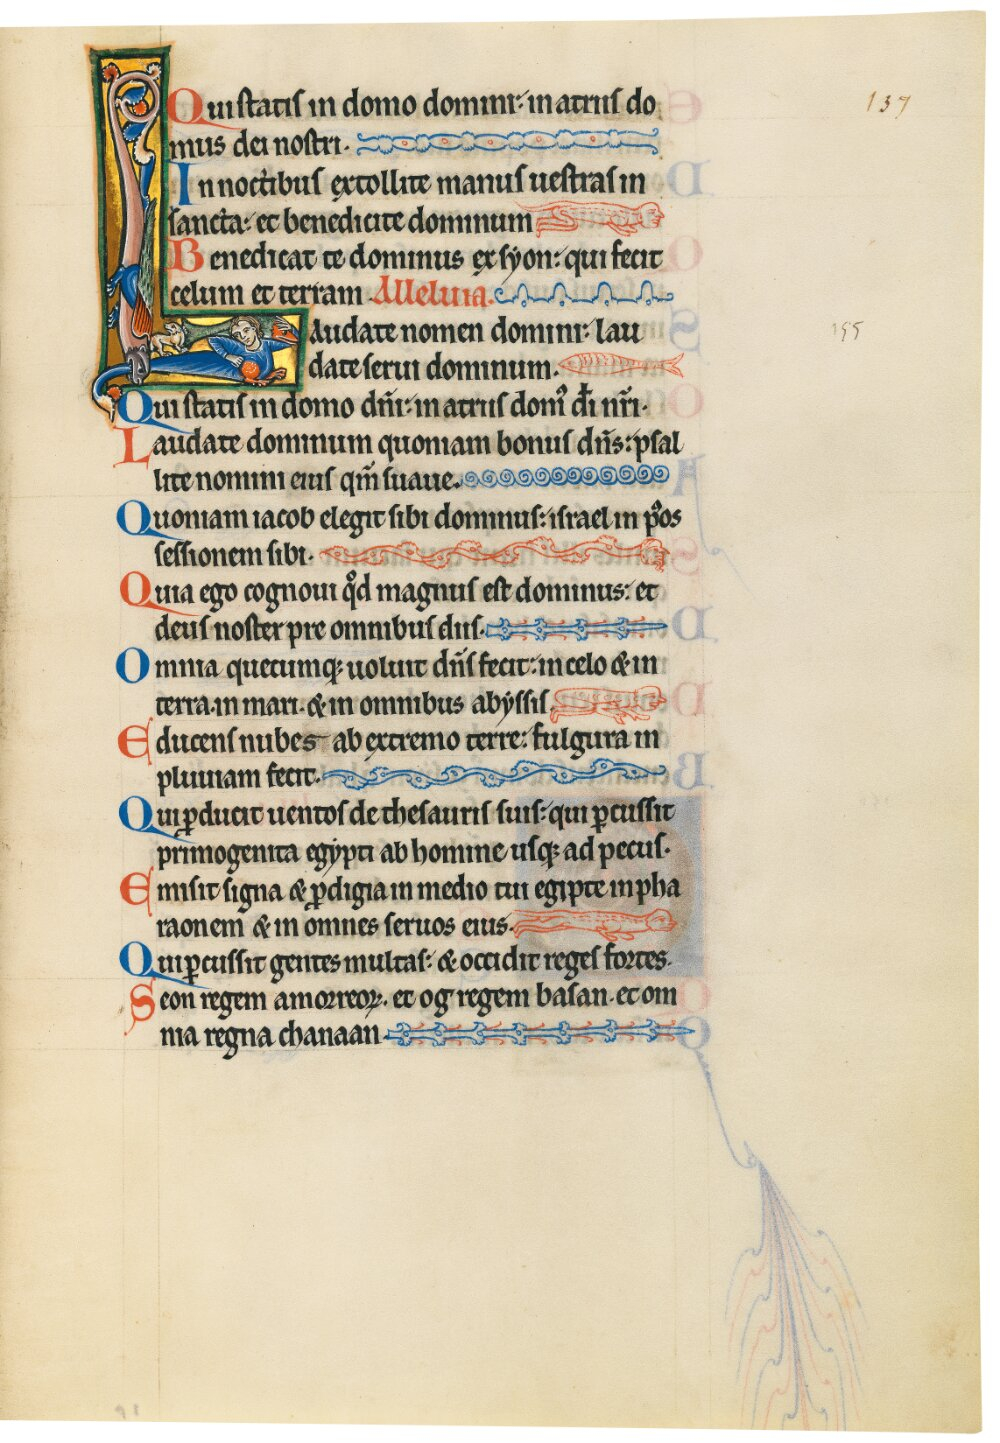 137
Qui statis in domo domini: in atriis do
mus dei nostri.
In noctibus extollite manus uestras in
sancta: et benedicite dominum
Benedicat te dominus ex syon: qui fecit
celum et terram. Alleluia.
Laudate nomen domini: lau
date serui dominum.
Qui statis in domo dñi: in atriis domꝰ di nr̃i.
Laudate dominum quoniam bonus dñs: psal
lite nomini eius qm̃ suaue.
Quoniam iacob elegit sibi dominus: israel in pos
sessionem sibi.
Quia ego cognoui qd magnus est dominus: et
deus noster pre omnibus diis.
Omnia quecumqꝫ uoluit dñs fecit: in celo & in
terra. in mari. & in omnibus abyssis.
Educens nubes ab extremo terre: fulgura in
pluuiam fecit.
Qui ꝓducit uentos de thesauris suis: qui ꝑcussit
primogenita egypti ab homine usqꝫ ad pecus.
Emisit signa & ꝓdigia in medio tui egipte in pha
raonem & in omnes seruos eius.
Qui ꝑcussit gentes multas: & occidit reges fortes.
Seon regem amorreoꝝ. et og regem basan. et om
nia regna chanaan